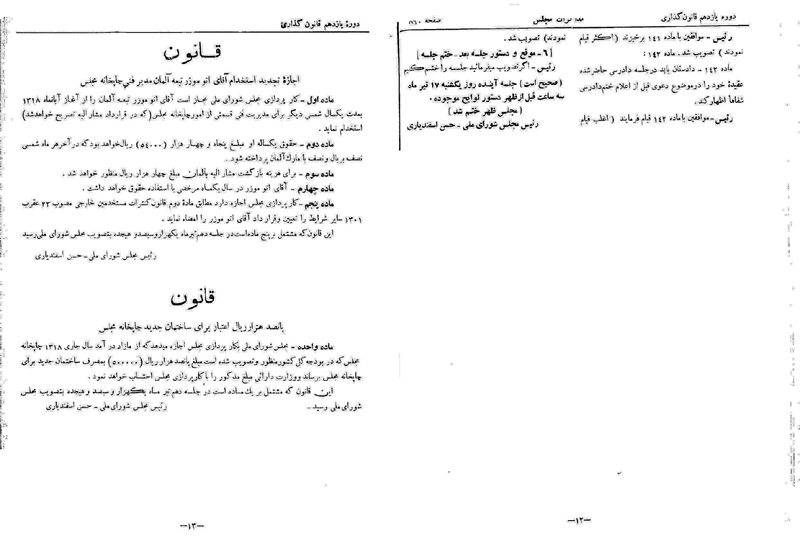 دوره یازدهم قانون‌گذاری
مذاکرات مجلس
صفحه ۷۶۰
رئیس - موافقین با ماده ۱۴۱ برخیزند (اکثر قیام
نمودند) تصویب شد. ماده ۱۴۲:
ماده ۱۴۲ - دادستان باید در جلسه دادرسی حاضر شده
عقیدهٔ خود را در موضوع دعوی قبل از اعلام ختم دادرسی
شفاهاً اظهار کند.
رئیس - موافقین با ماده ۱۴۲ قیام فرمایند (اغلب قیام
نمودند) تصویب شد.
[۶ - موقع و دستور جلسه بعد - ختم جلسه]
رئیس - اگر تصویب میفرمائید جلسه را ختم کنیم
(صحیح است) جلسه آینده روز یکشنبه ۱۷ تیر ماه
سه ساعت قبل از ظهر دستور لوایح موجوده.
(مجلس ظهر ختم شد)
رئیس مجلس شورای ملی - حسن اسفندیاری
—۱۲—
دوره یازدهم قانون گذاری
قانون
اجازهٔ تجدید استخدام آقای اتو موزر تبعه آلمان مدیر فنی چاپخانه مجلس
ماده اول - کار پردازی مجلس شورای ملی مجاز است آقای اتو موزر تبعه آلمان را از آغاز آبانماه ۱۳۱۸
بمدت یکسال شمسی دیگر برای مدیریت فنی قسمتی از امور چاپخانه مجلس (که در قرارداد مشار الیه تصریح خواهد شد)
استخدام نماید.
ماده دوم - حقوق یکساله او مبلغ پنجاه و چهار هزار (۵۴۰۰۰) ریال خواهد بود که در آخر هر ماه شمسی
نصف بریال و نصف با مارک آلمان پرداخته شود.
ماده سوم - برای هزینه بازگشت مشار الیه بآلمان مبلغ چهار هزار ریال منظور خواهد شد.
ماده چهارم - آقای اتو موزر در سال یکماه مرخصی با استفاده حقوق خواهد داشت.
ماده پنجم - کار پردازی مجلس اجازه دارد مطابق مادهٔ دوم قانون کنترات مستخدمین خارجی مصوب ۲۳ عقرب
۱۳۰۱ - سایر شرایط را تعیین و قرارداد آقای اتو موزر را امضاء نماید.
این قانون که مشتمل بر پنج ماده است در جلسه دهم تیر ماه یکهزار و سیصد و هیجده بتصویب مجلس شورای ملی رسید
رئیس مجلس شورای ملی - حسن اسفندیاری
قانون
پانصد هزار ریال اعتبار برای ساختمان جدید چاپخانه مجلس
ماده واحده - مجلس شورای ملی بکار پردازی مجلس اجازه میدهد که از مازاد در آمد سال جاری ۱۳۱۸ چاپخانه
مجلس که در بودجه کل کشور منظور و تصویب شده است مبلغ پانصد هزار ریال (۵۰۰۰۰۰) بمصرف ساختمان جدید برای
چاپخانه مجلس برساند و وزارت دارائی مبلغ مذکور را با کار پردازی مجلس احتساب خواهد نمود.
این قانون که مشتمل بر یک ماده است در جلسه دهم تیر ماه یکهزار و سیصد و هیجده بتصویب مجلس
شورای ملی رسید - رئیس مجلس شورای ملی - حسن اسفندیاری
—۱۳—